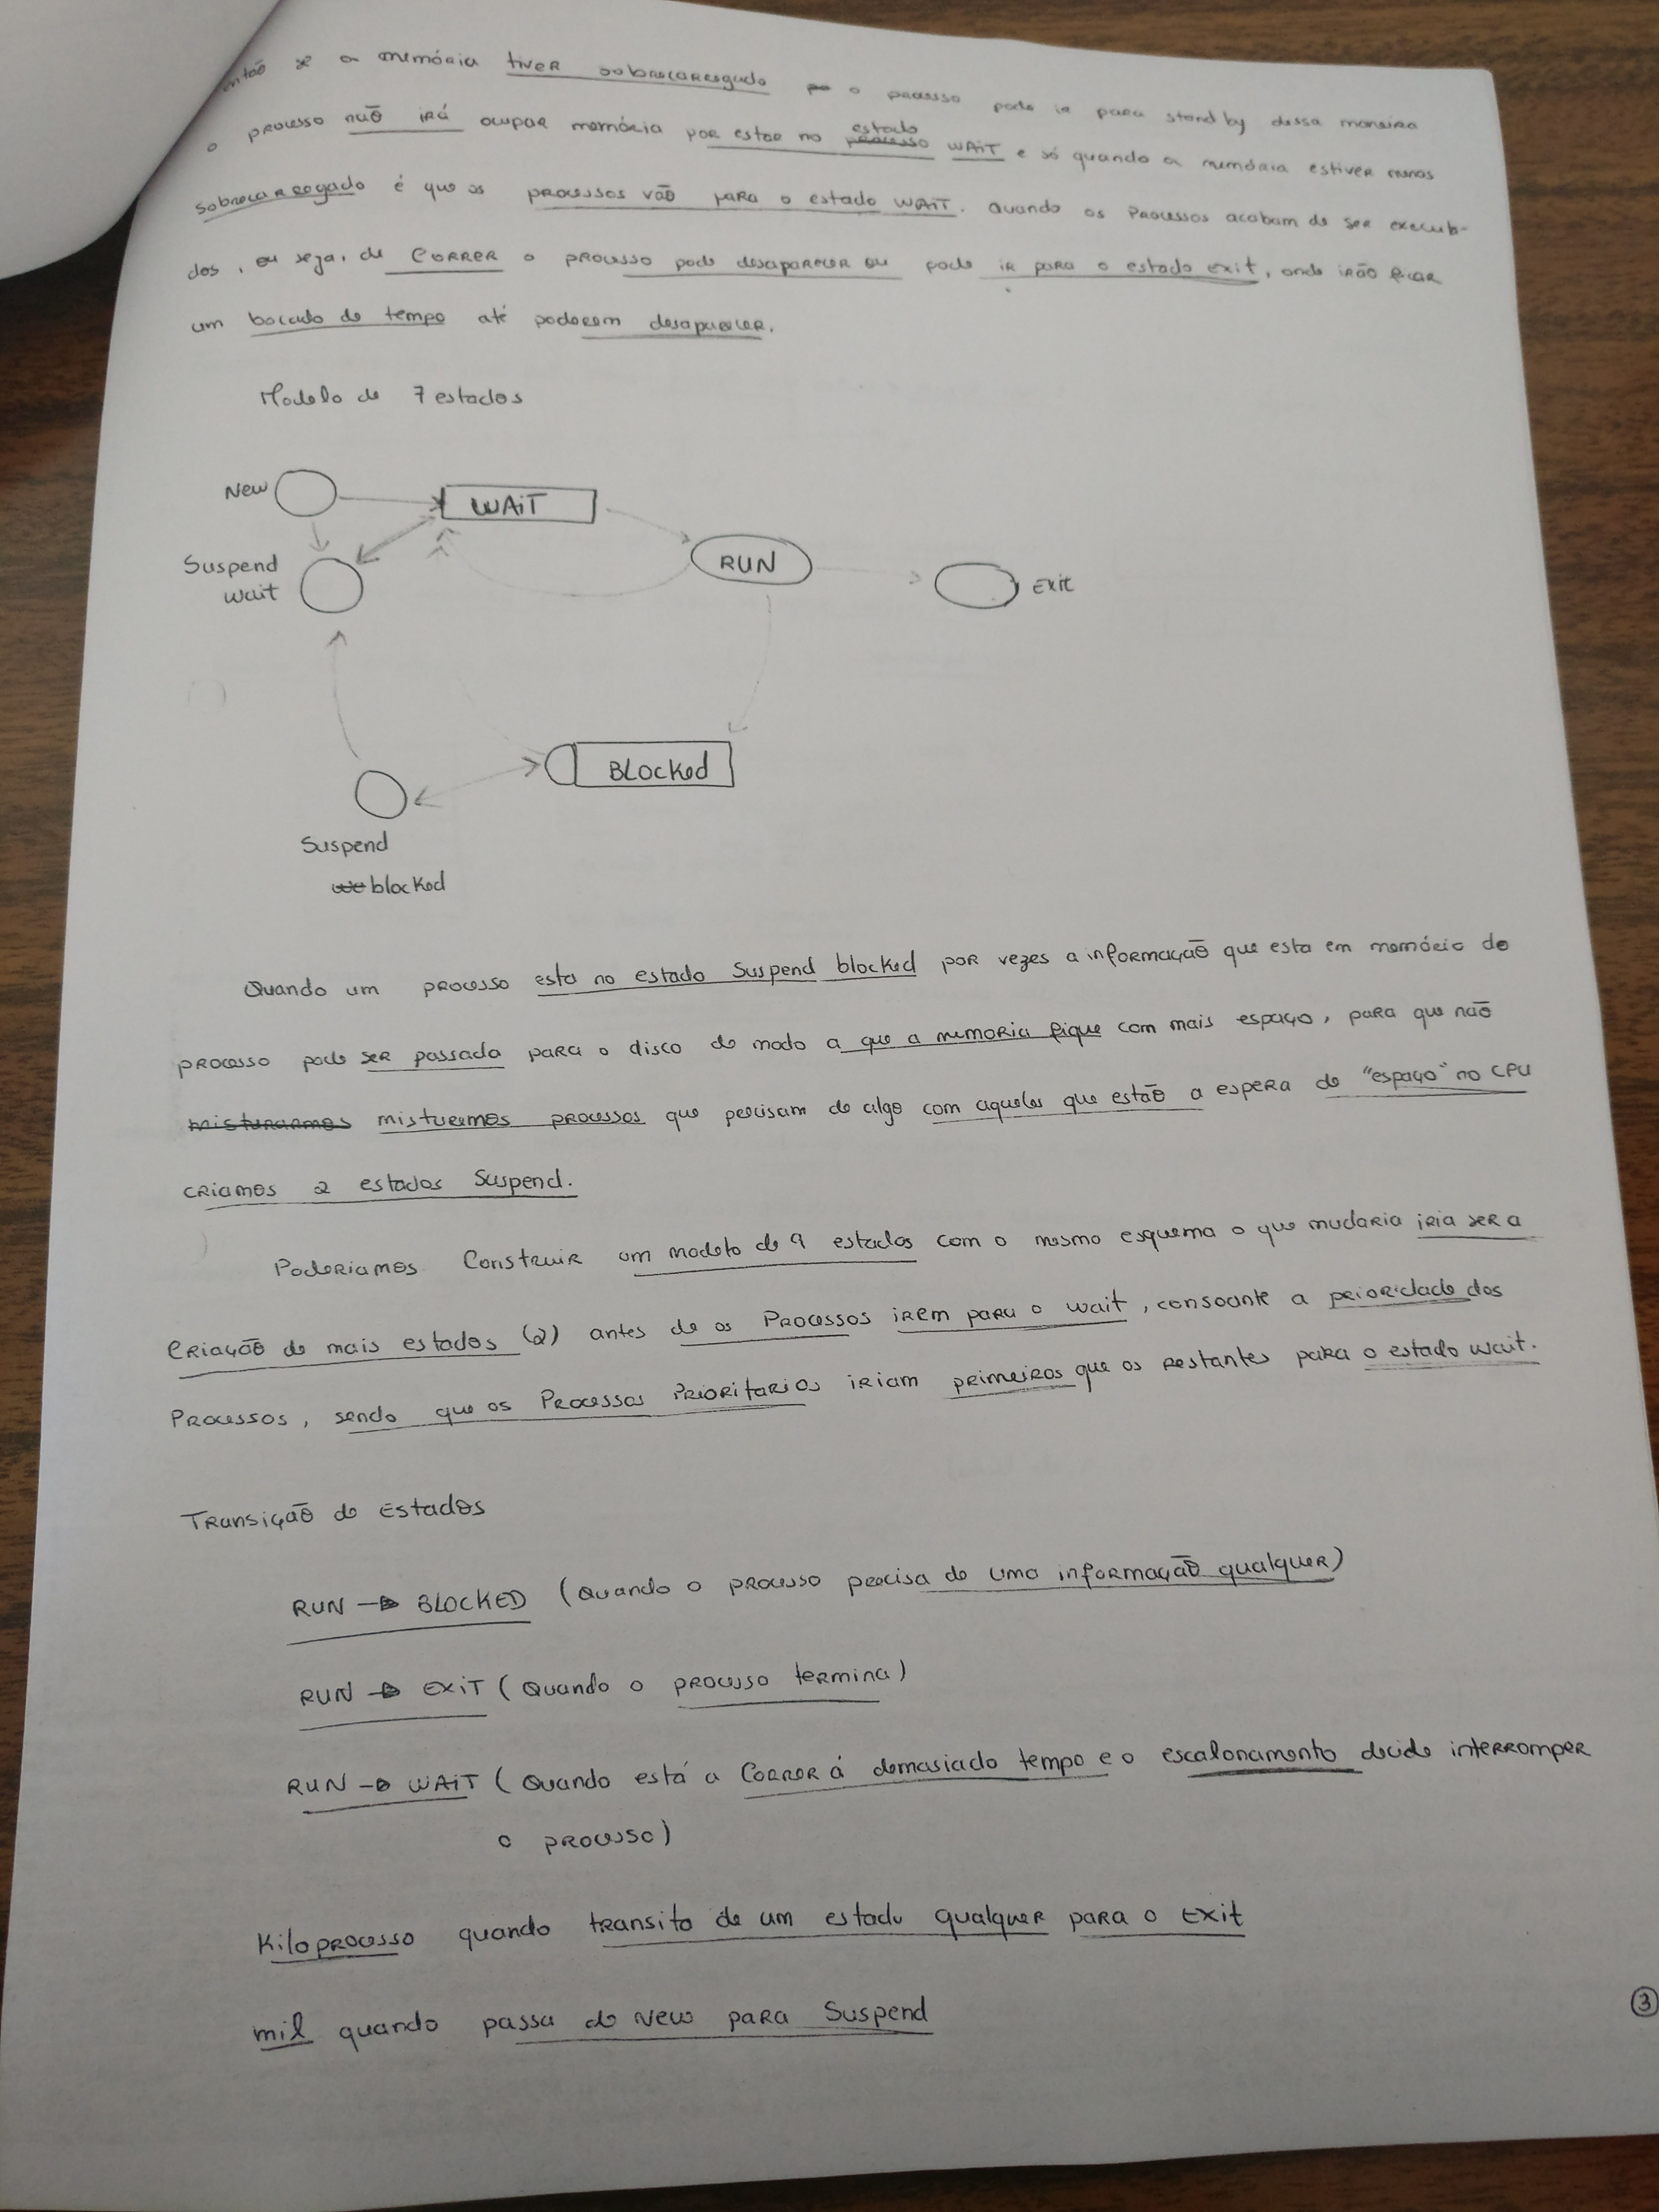 então se a memória tiver sobrecarregada o processo pode ir para stand by dessa maneira
o processo não irá ocupar memória por estar no estado WAIT e só quando a memória estiver menos
sobrecarregada é que os processos vão para o estado WAIT. Quando os Processos acabam de ser executa-
dos, ou seja, de CORRER o processo pode desaparecer ou pode ir para o estado exit, onde irão ficar
um bocado de tempo até poderem desaparecer.
Modelo de 7 estados
New
WAIT
Suspend
wait
RUN
Exit
BLocked
Suspend
blocked
Quando um processo esta no estado Suspend blocked por vezes a informação que esta em memória do
processo pode ser passada para o disco de modo a que a memoria fique com mais espaço, para que não
misturarmos misturemos processos que precisam de algo com aqueles que estão a espera de "espaço" no CPU
criamos 2 estados Suspend.
Poderiamos Construir um modelo de 9 estados com o mesmo esquema o que mudaria iria ser a
Criação de mais estados (2) antes de os Processos irem para o wait, consoante a prioridade dos
Processos, sendo que os Processos Prioritarios iriam primeiros que os restantes para o estado wait.
Transição de Estados
RUN → BLOCKED (Quando o processo precisa de uma informação qualquer)
RUN → EXIT (Quando o processo termina)
RUN → WAIT (Quando está a Correr á demasiado tempo e o escalonamento decide interromper
o processo)
Kilo processo quando transita de um estado qualquer para o Exit
mil quando passa do New para Suspend
3